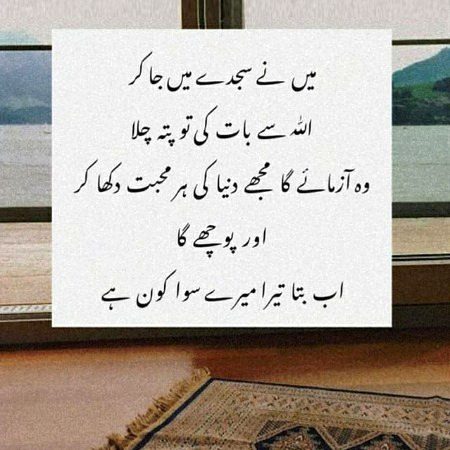 میں نے سجدے میں جا کر
اللہ سے بات کی تو پتہ چلا
وہ آزمائے گا مجھے دنیا کی ہر محبت دکھا کر
اور پوچھے گا
اب بتا تیرا میرے سوا کون ہے